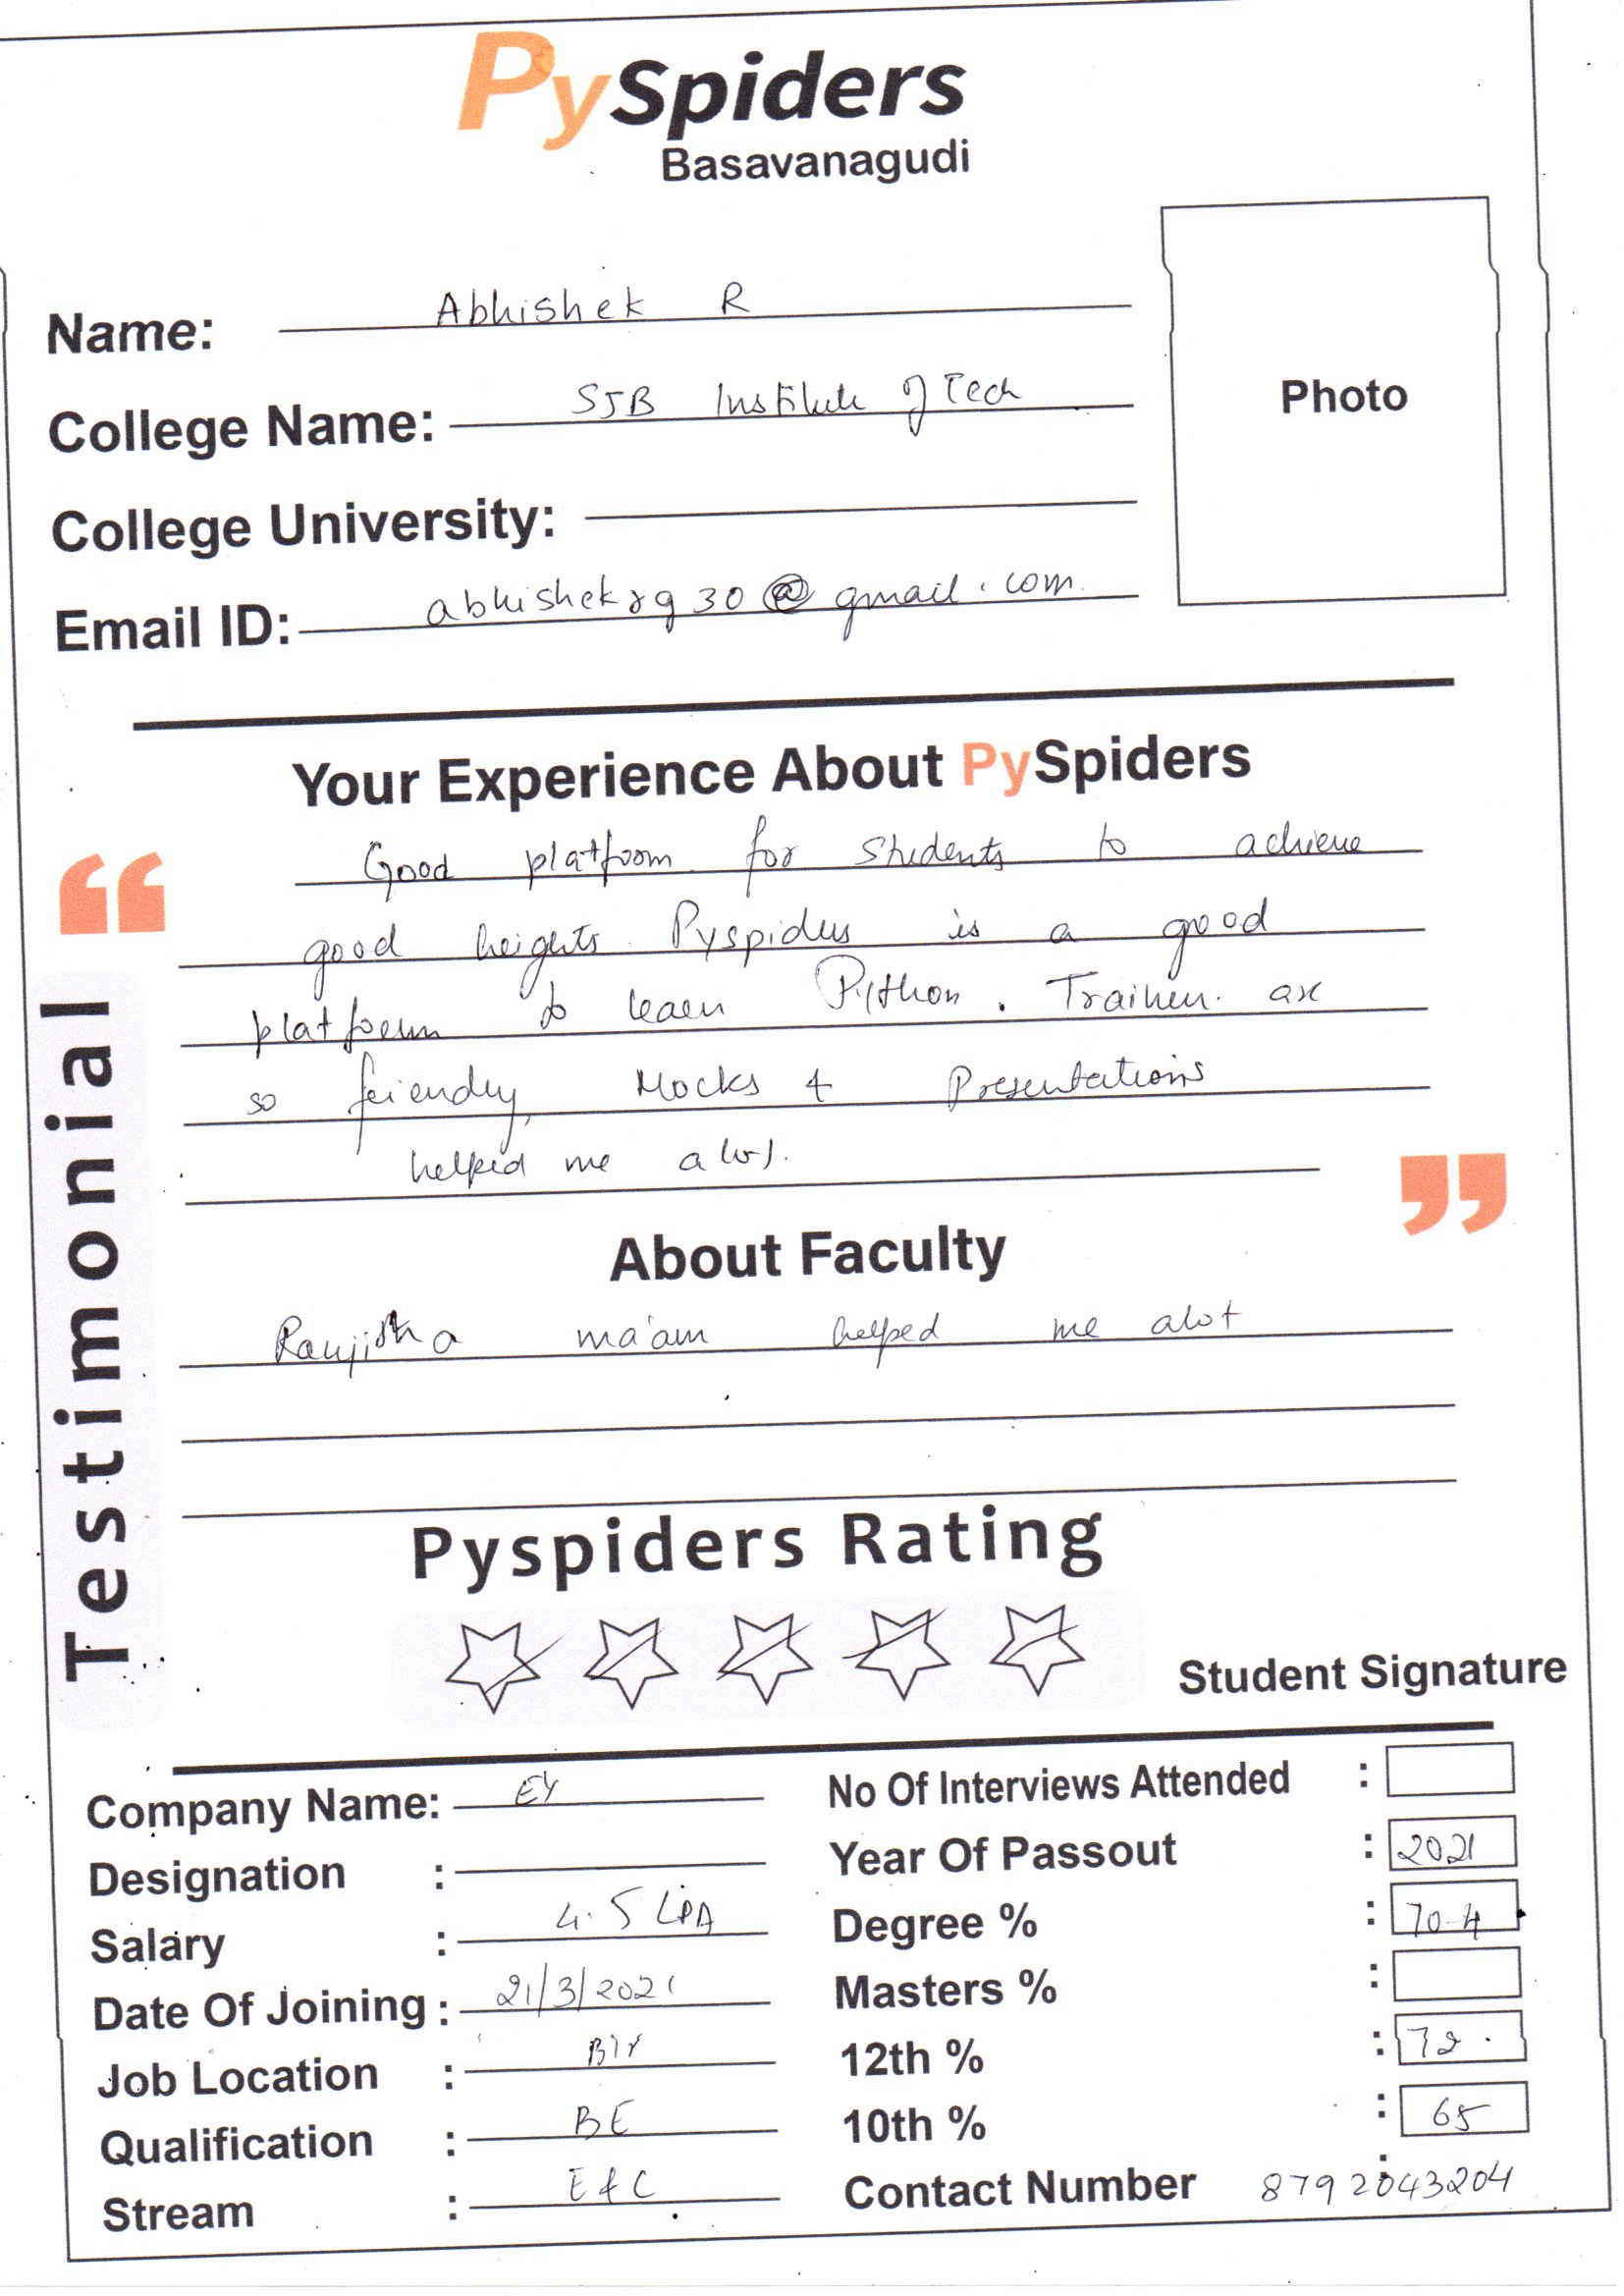 PySpiders
Basavanagudi
Photo
Name: Abhishek R
College Name: SJB Institute of Tech
College University:
Email ID: abhishekrg30@gmail.com
Your Experience About PySpiders
Good platform for students to achieve
good heights. Pyspiders is a good
platform to learn Python. Trainers are
so friendly, Mocks & Presentations
helped me a lot.
Testimonial
About Faculty
Ranjitha ma'am helped me alot
Pyspiders Rating
Student Signature
Company Name: EY
Designation :
Salary : 4.5 LPA
Date Of Joining : 21/3/2021
Job Location : Blr
Qualification : BE
Stream : E&C
No Of Interviews Attended :
Year Of Passout : 2021
Degree % : 70.4
Masters % :
12th % : 72.
10th % : 65
Contact Number : 8792043204